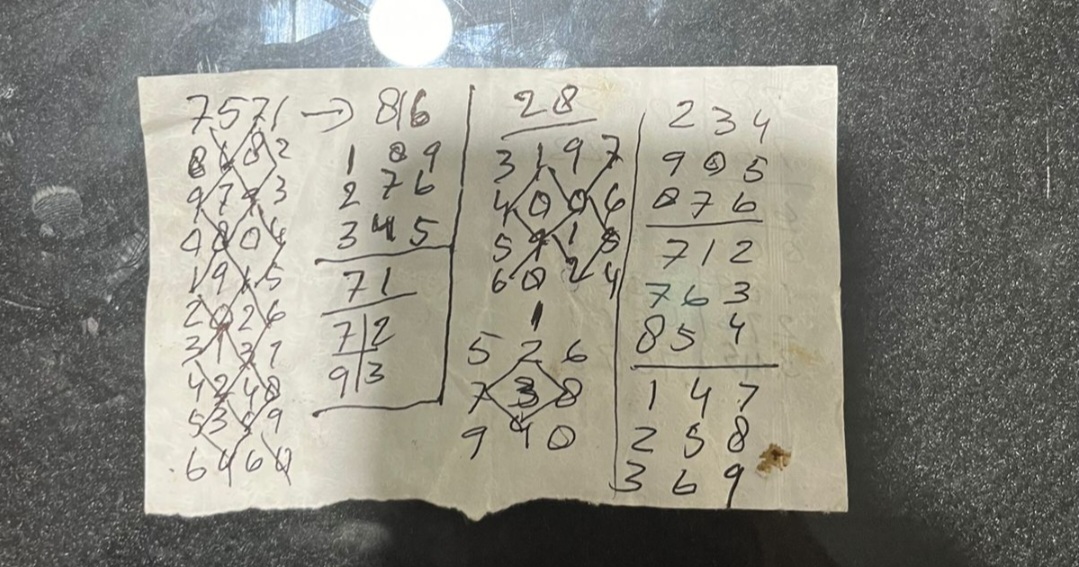 7571 → 816
8682
9793
0804
1915
2026
3137
4248
5359
6460
1 0 9
2 7 6
3 4 5
71
7|2
9|3
28
3 1 9 7
4 0 0 6
5 9 1 5
6 0 2 4
1
5 2 6
7 3 8
9 4 0
2 3 4
9 0 5
8 7 6
7 1 2
7 6 3
8 5 4
1 4 7
2 5 8
3 6 9